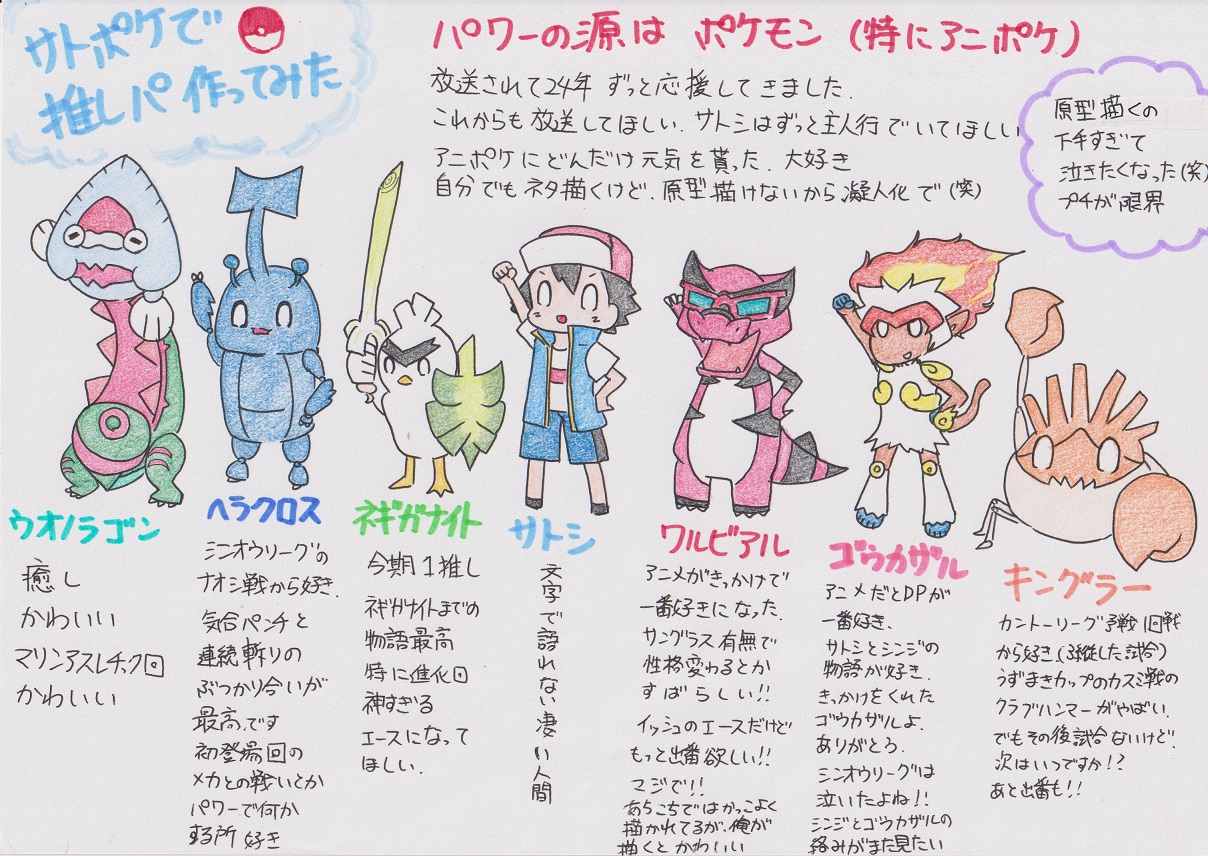 サトポケで
推しパ作ってみた
パワーの源は ポケモン (特にアニポケ)
放送されて24年 ずっと応援してきました.
これからも放送してほしい. サトシはずっと主人行でいてほしい
アニポケにどんだけ元気を貰った. 大好き
自分でもネタ描くけど. 原型描けないから凝人化で(笑)
原型描くの
下手すぎて
泣きたくなった(笑)
プチが限界
ウオノラゴン
癒し
かわいい
マリンアスレチック回
かわいい
ヘラクロス
シンオウリーグの
ナオシ戦から好き.
気合パンチと
連続斬りの
ぶつかり合いが
最高.です
初登場回の
メカとの戦いとか
パワーで何か
する所 好き
ネギガナイト
今期1推し
ネギガナイトまでの
物語最高
特に進化回
神すぎる
エースになって
ほしい.
サトシ
文字で語れない凄い人間
ワルビアル
アニメがきっかけで
一番好きになった.
サングラス有無で
性格変わるとか
すばらしい!!
イッシュのエースだけど
もっと出番欲しい!!
マジで!!
あちこちではかっこよく
描かれてるが、俺が
描くとかわいい
ゴウカザル
アニメだとDPが
一番好き.
サトシとシンジの
物語が好き.
きっかけをくれた
ゴウカザルよ.
ありがとう.
シンオウリーグは
泣いたよね!!
シンジとゴウカザルの
絡みがまた見たい
キングラー
カントーリーグ予戦1回戦
から好き.(3縦した試合)
うずまきカップのカスミ戦の
クラブハンマーがやばい.
でもその後試合ないけど.
次はいつですか!?
あと出番も!!